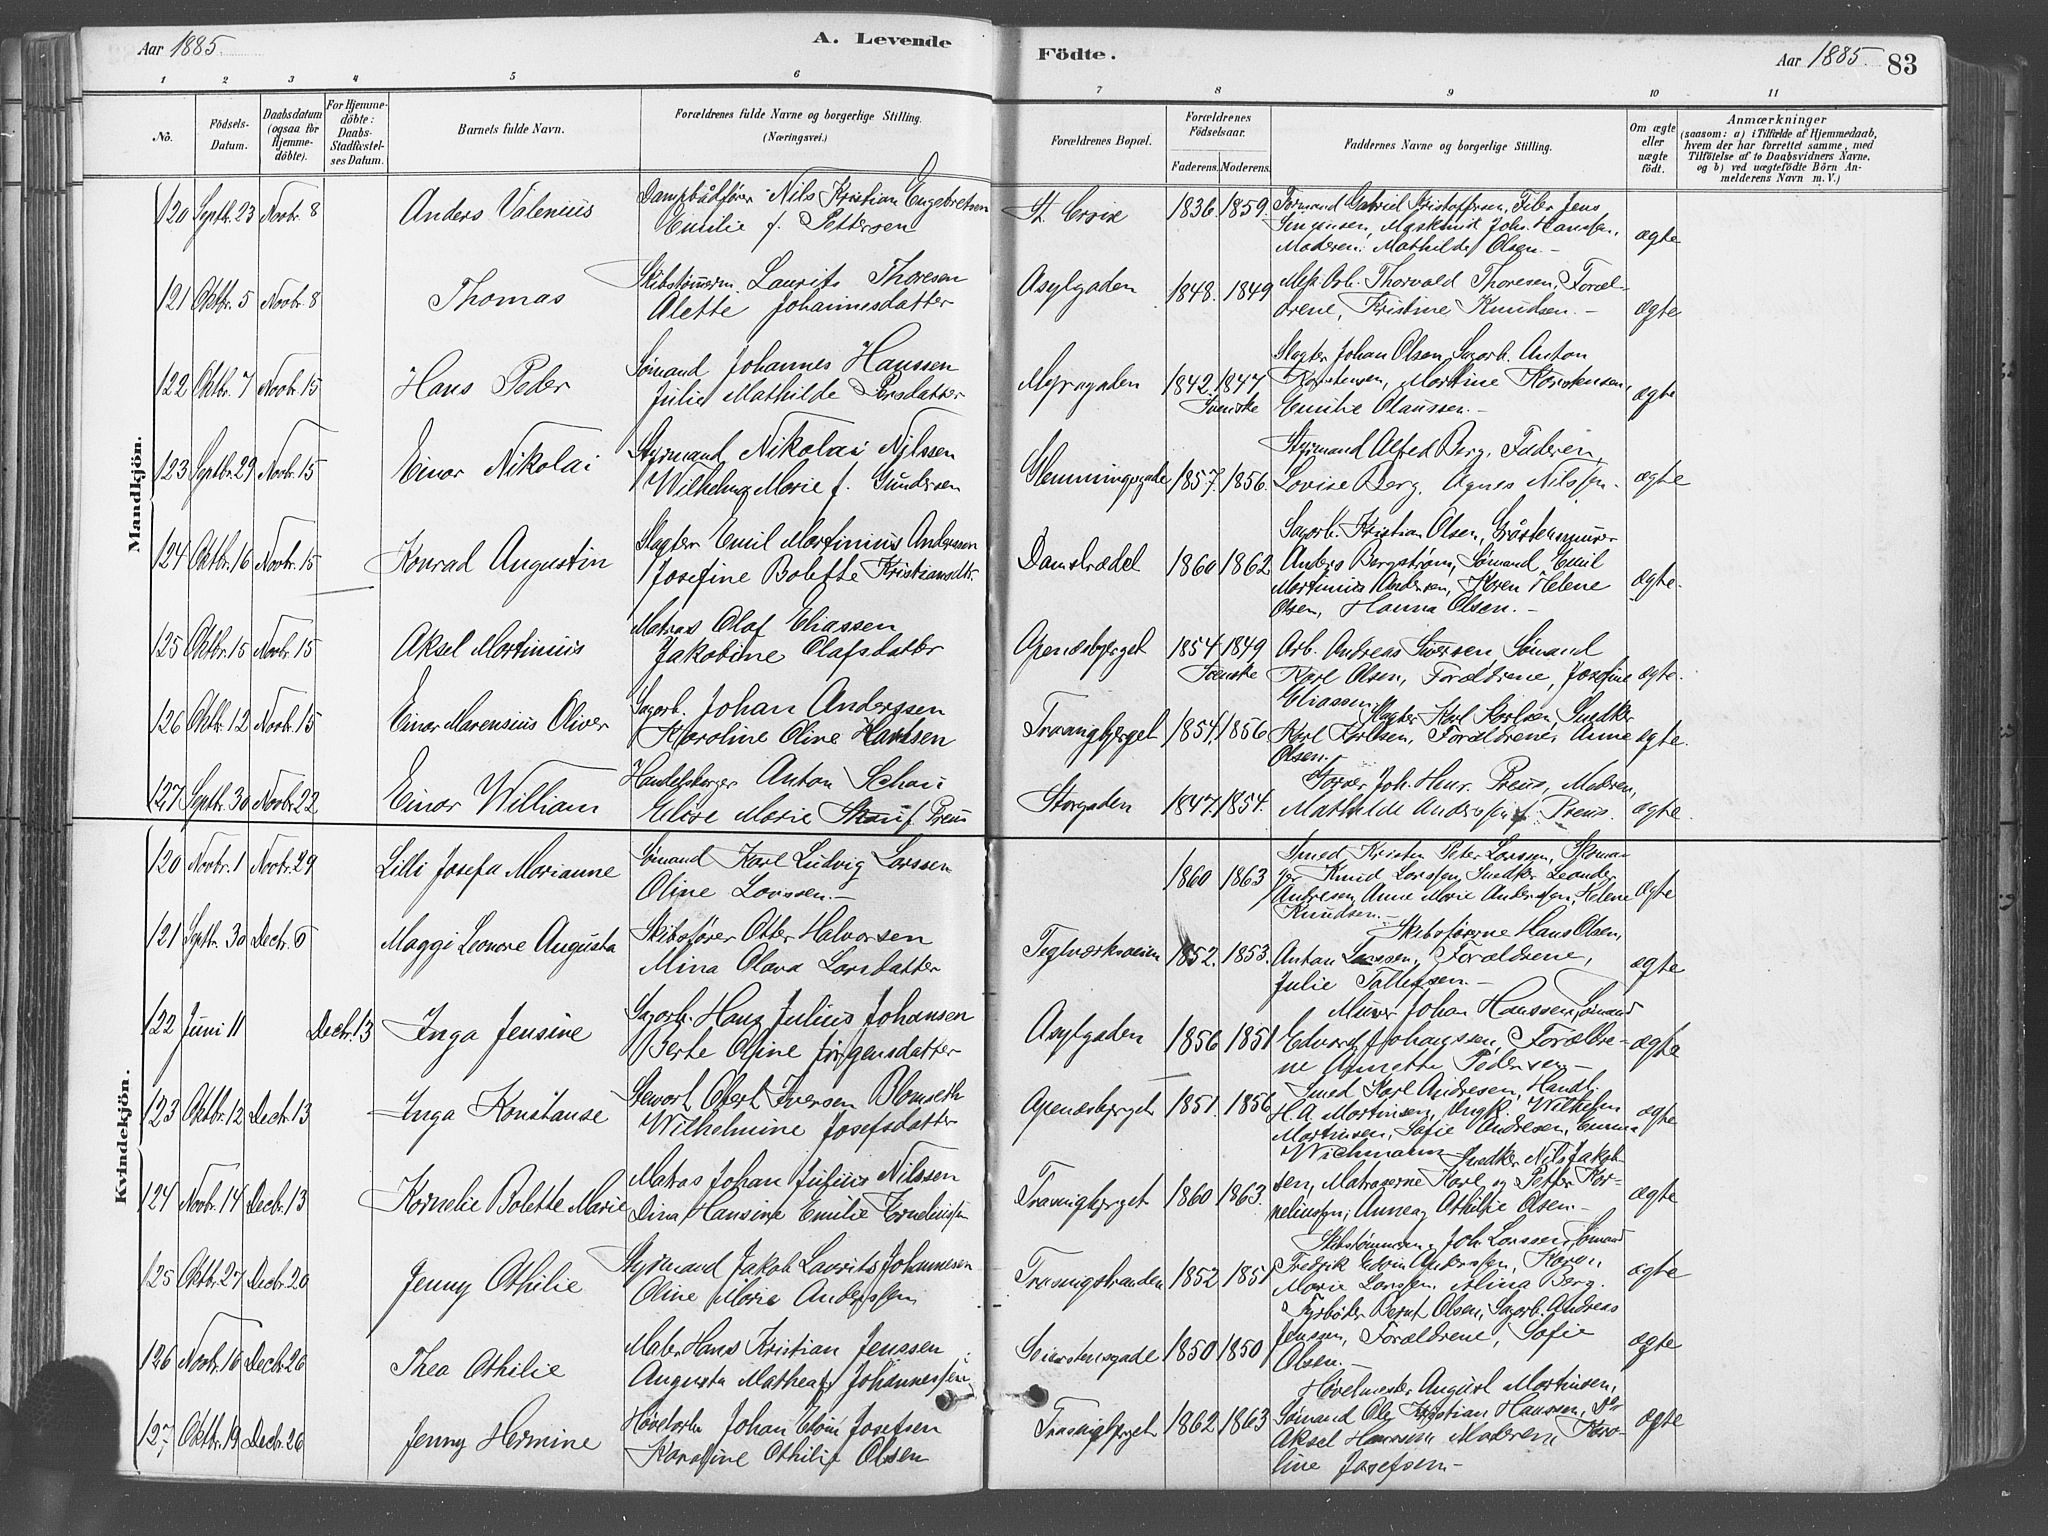 Aar 1885.
A. Levende
Födte.
Aar 1885. 83
1 2 3 4 5 6 7 8 9 10 11
No.
Födsels-
Datum.
Daabsdatum
(ogsaa for
Hjemme-
döbte).
For Hjemme-
döbte:
Daabs-
Stadfæstel-
ses Datum.
Barnets fulde Navn.
Forældrenes fulde Navne og borgerlige Stilling.
(Næringsvei.)
Forældrenes Bopæl.
Forældrenes
Födselsaar.
Faderens. Moderens.
Faddernes Navne og borgerlige Stilling.
Om ægte
eller
uægte
födt.
Anmærkninger
(saasom: a) i Tilfælde af Hjemmedaab,
hvem der har forrettet samme, med
Tilföielse af to Daabsvidners Navne.
og b) ved uægtefödte Börn An-
melderens Navn m. V.)
Mandkjön.
120 Septbr. 23 Novbr. 8 Anders Valenius
Dampbådfører Nils Kristian Engebretsen
Emilie f. Pettersen
St. Croix 1836. 1859.
Formand Gabriel Kristoffersen, Filer Jens
Maskinist Joh. Hanssen,
Moderen. Mathilde Olsen.— ægte
121 Oktbr. 5 Novbr. 8 Thomas
Skibstømmerm. Laurits Thoresen
Alette Johannesdatter
Asylgaden 1848. 1849
Mek. Arb. Thorvald Thoresen, Foræl-
drene, Kristine Knudsen.— ægte
122 Oktbr. 7 Novbr. 15 Hans Peder
Sømand Johannes Hanssen
Julie Mathilde Larsdatter
Myragaden 1842. 1847
Svenske
Slagter Johan Olsen, Sagarb. Anton
Karstensen, Martine Karstensen,
Emilie Olaussen.— ægte
123 Septbr. 29 Novbr. 15 Einar Nikolai
Styrmand Nikolai Nilssen
Wilhelm. Marie f. Gundersen
Glemmingegade 1857. 1856.
Styrmand Alfred Berg, Faderen,
Lovise Berg. Agnes Nilssen. ægte
124 Oktbr. 16 Novbr. 15 Konrad Augustin
Slagter Emil Martinius Anderssen
Josefine Bolette Kristiansdtr.
Damstrædet 1860 1862
Sagarb. Kristian Olsen, Gråstensmurer
Anders Bergstrøm, Sømand Emil
Martinius Andersen, Karen Helene
Olsen, Hanna Olsen.— ægte.
125 Oktbr. 15 Novbr. 15 Aksel Martinius
Matros Olaf Eliassen
Jakobine Olafsdatter
Apenæsbjerget 1854. 1849
Svenske
Arb. Andreas Iversen Sømand
Karl Olsen, Forældrene, Josefine
Eliassen ægte.
126 Oktbr. 12 Novbr. 15 Einar Marensius Oliver
Sagarb. Johan Anderssen
Karoline Oline Karlsen
Traraigbjerget 1854. 1856
Slagter Karl Karlsen, Snedker
Karl Karlsen, Forældrene, Anne
Olsen.— ægte.
127 Septbr. 30 Novbr. 22 Einar William
Handelsborger Anton Schau
Elise Marie f. Preus
Storgaden 1847. 1854.
Garver Joh. Henr. Preus, Moderen,
Mathilde Anderssen f. Preus. ægte.
Kvindekjön.
120 Novbr. 1 Novbr. 29 Lilli Josefa Marianne
Sømand Karl Ludvig Larssen
Oline Larssen.—
1860 1863
Smed Kristen Peter Larssen, Skoma-
ger Knud Larssen, Snedker Leander
Andresen, Anne Marie Anderssen, Helene
Knudsen.— ægte
121 Septbr. 30 Decbr. 6 Maggi Leonore Augusta
Skibsfører Otter Halvorsen
Mina Olava Larsdatter
Teglværksveien 1852. 1853.
Skibsførerne Hans Olsen,
Anton Larssen, Forældrene,
Julie Tollefsen.— ægte
122 Juni 11 Decbr. 13 Inga Jensine
Sagarb. Hans Julius Johansen
Berte Oline Jörgensdatter
Asylgaden 1856 1851
Murer Johan Hanssen, Sømand
Edvard Johanssen, Forældre-
ne Annette Pedersen— ægte
123 Oktbr. 12 Decbr. 13 Inga Konstanse
Stewart Obert Iversen Blomseth
Wilhelmine Josefsdatter
Apenæsbjerget 1851. 1856
Smed Karl Andresen, Handl.
H. A. Martinsen, Ungk. Wilhelm
Martinsen, Sofie Andresen, Emma
Wichmann ægte
124 Novbr. 14 Decbr. 13 Kornelie Bolette Marie
Matros Johan Julius Nilssen
Dina Hansine Emilie Korneliussen
Traraigbjerget 1860 1863.
Snedker Nils Jakob-
sen, Matroserne Karl og Petter Kor-
neliussen, Anne og Othilie Olsen.— ægte
125 Oktbr. 27 Decbr. 20 Jenny Othilie
Styrmand Jakob Laurits Johannesen
Oline Marie Anderssen
Traraigstranden 1852 1851
Skibstømmerm. Joh. Larssen, Sømand
Fredrik Edvin Anderssen, Karen
Marie Larssen, Alina Berg. ægte
126 Novbr. 16 Decbr. 26 Thea Othilie
Maler Hans Kristian Jenssen
Augusta Mathea f. Johannessen
1850 1850
Fyrbøder Bernt Olsen, Sagarb. Andreas
Jenssen, Forældrene, Sofie
Olsen.— ægte
127 Oktbr. 19 Decbr. 26 Jenny Hermine
Høvelarb. Johan Edvin Josefsen
Karoline Othilie Olsen
Traraigbjerget 1862 1863
Høvelmester August Martinsen,
Sømand Ole Kristian Hanssen, Do
Aksel Hanssen Moderen, Karo-
line Josefsen— ægte